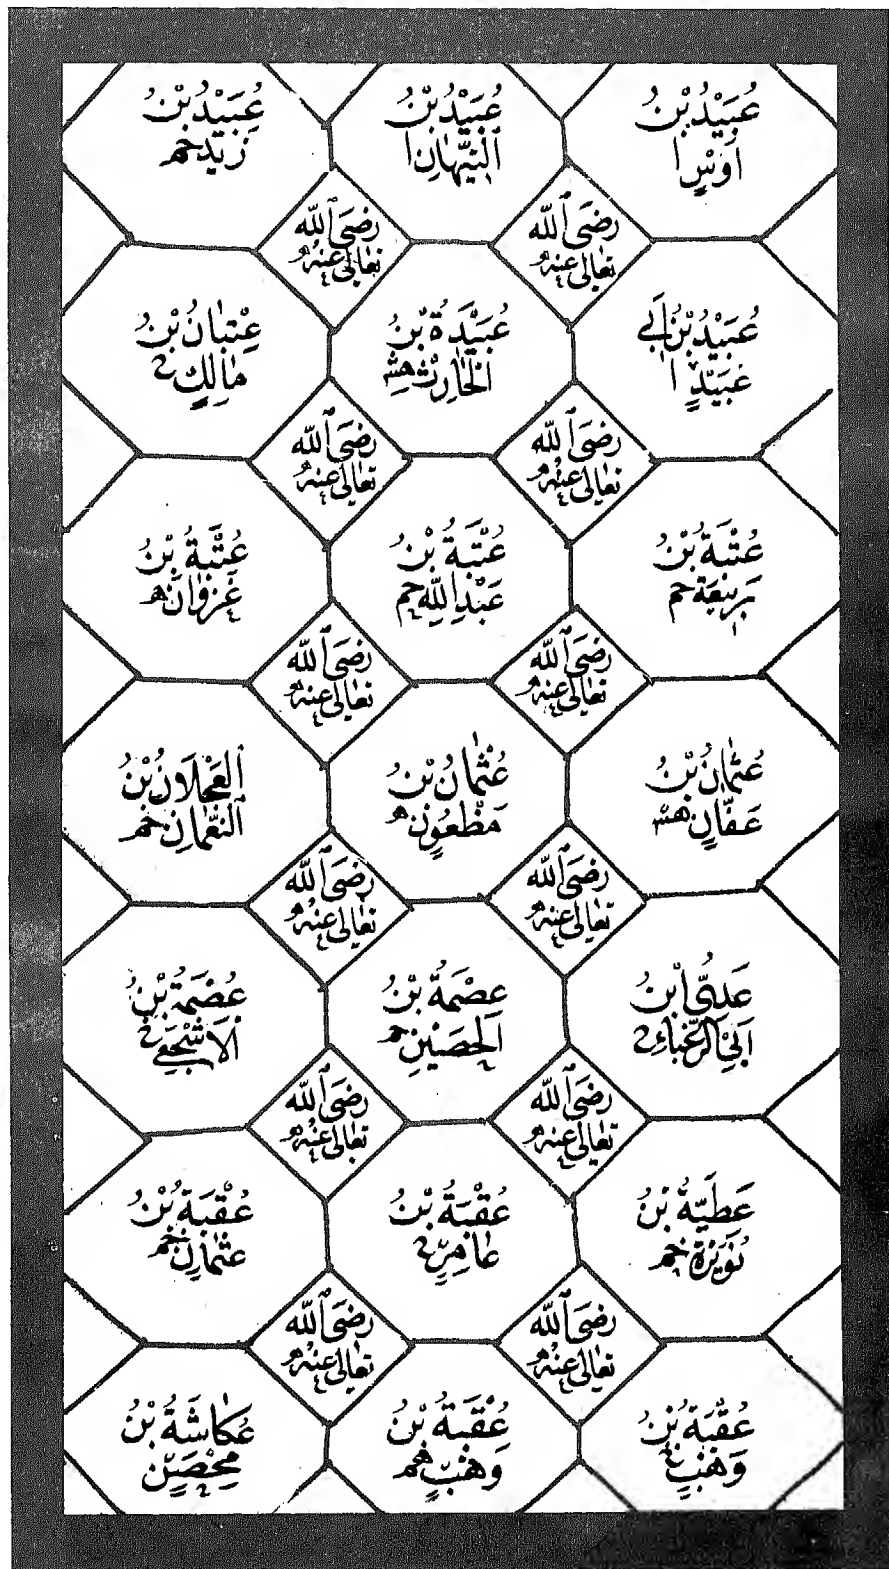 عُبَيْدُ بْنُ
اَوْسٍ ا
عُبَيْدُ بْنُ
التَّيِّهَانِ ا
عُبَيْدُ بْنُ
زَيْدٍ خم
رَضِيَ اللّٰه
تَعَالٰى عَنْهُ
رَضِيَ اللّٰه
تَعَالٰى عَنْهُ
عُبَيْدُ بْنُ اَبِي
عُبَيْدٍ ا
عُبَيْدَةُ بْنُ
الْحَارِثِ هش
عِتْبَانُ بْنُ
مَالِكٍ
رَضِيَ اللّٰه
تَعَالٰى عَنْهُ
رَضِيَ اللّٰه
تَعَالٰى عَنْهُ
عُتْبَةُ بْنُ
رَبِيْعَةَ حم
عُتْبَةُ بْنُ
عَبْدِ اللّٰهِ حم
عُتْبَةُ بْنُ
غَزْوَانَ
رَضِيَ اللّٰه
تَعَالٰى عَنْهُ
رَضِيَ اللّٰه
تَعَالٰى عَنْهُ
عُثْمَانُ بْنُ
عَفَّانٍ هش
عُثْمَانُ بْنُ
مَظْعُوْنٍ
الْعَجْلَانُ بْنُ
النُّعْمَانِ خم
رَضِيَ اللّٰه
تَعَالٰى عَنْهُ
رَضِيَ اللّٰه
تَعَالٰى عَنْهُ
عَدِيُّ ابْنُ
اَبِي الزَّغْبَاءِ
عِصْمَةُ بْنُ
الْحُصَيْنِ خم
عُصَمَةُ بْنُ
الْاَشْجَعِيِّ
رَضِيَ اللّٰه
تَعَالٰى عَنْهُ
رَضِيَ اللّٰه
تَعَالٰى عَنْهُ
عَطِيَّةُ بْنُ
نُوَيْرَةَ خم
عُقْبَةُ بْنُ
عَامِرٍ
عُقْبَةُ بْنُ
عُثْمَانَ خم
رَضِيَ اللّٰه
تَعَالٰى عَنْهُ
رَضِيَ اللّٰه
تَعَالٰى عَنْهُ
عُقْبَةُ بْنُ
وَهْبٍ
عُقْبَةُ بْنُ
وَهْبٍ خم
عُكَاشَةُ بْنُ
مِحْصَنٍ